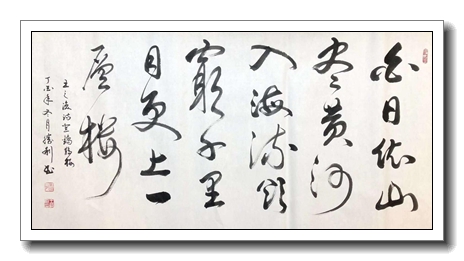 白日依山
尽黄河
入海流欲
窮千里
目更上一
層樓
王之涣诗登鹳雀楼
丁酉年月勝利书